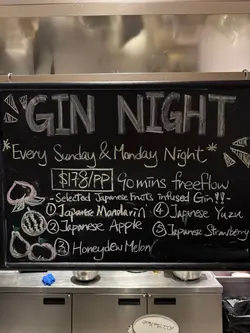 GIN NIGHT
*Every Sunday & Monday Night*
$178/PP 90mins freeflow
- Selected Japanese Fruits infused Gin!! -
① Japanese Mandarin ④ Japanese Yuzu
② Japanese Apple ⑤ Japanese Strawberry
③ Honeydew Melon